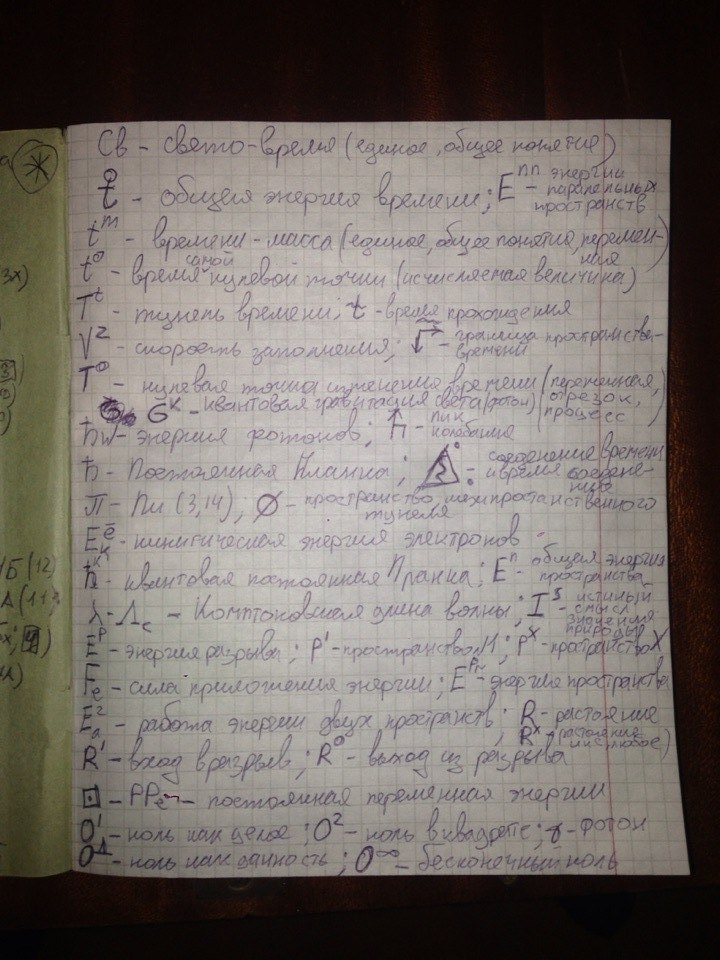 Св - свето-время (единое, общее понятие)
t - общая энергия времени; E^пп - энергии паралельных пространств
t^m - времени-масса (единое, общее понятие, переменная)
t^0 - время самой нулевой точки (исчисляемая величина)
T^t - тунель времени; t - время прохождения
V^2 - скорость заполнения; - граница пространства-времени
T^0 - нулевая точка изменения времени (переменная, отрезок, процесс)
G^к - квантовая гравитация света (фотон)
ħw - энергия фотонов; - пик колебание
ħ - Постоянная Планка; - соеденение времени и время
П - Пи (3,14); Ø - пространство межпростанственного тунеля
E_к^ē - кинитическая энергия электронов
ħ^к - квантовая постоянная Планка; E^п - общая энергия пространства
λ - Λ_c - Комптоновская длина волны; I^s - истиный смысл значения природы
E^P - энергия разрыва; P^1 - пространство И; P^X - пространство X
F_e - сила приложения энергии; E^Pr - энергия пространства
E_a^2 - работа энергии двух пространств; R - растояние
R^x - растояние любое)
R^1 - вход вразрыв; R^0 - выход из разрыва
⊡ - PP_e - постоянная переменная энергии
O^1 - ноль как целое; O^2 - ноль в квадрате; γ - фотон
O^Д - ноль как данность; O^∞ - бесконечный ноль